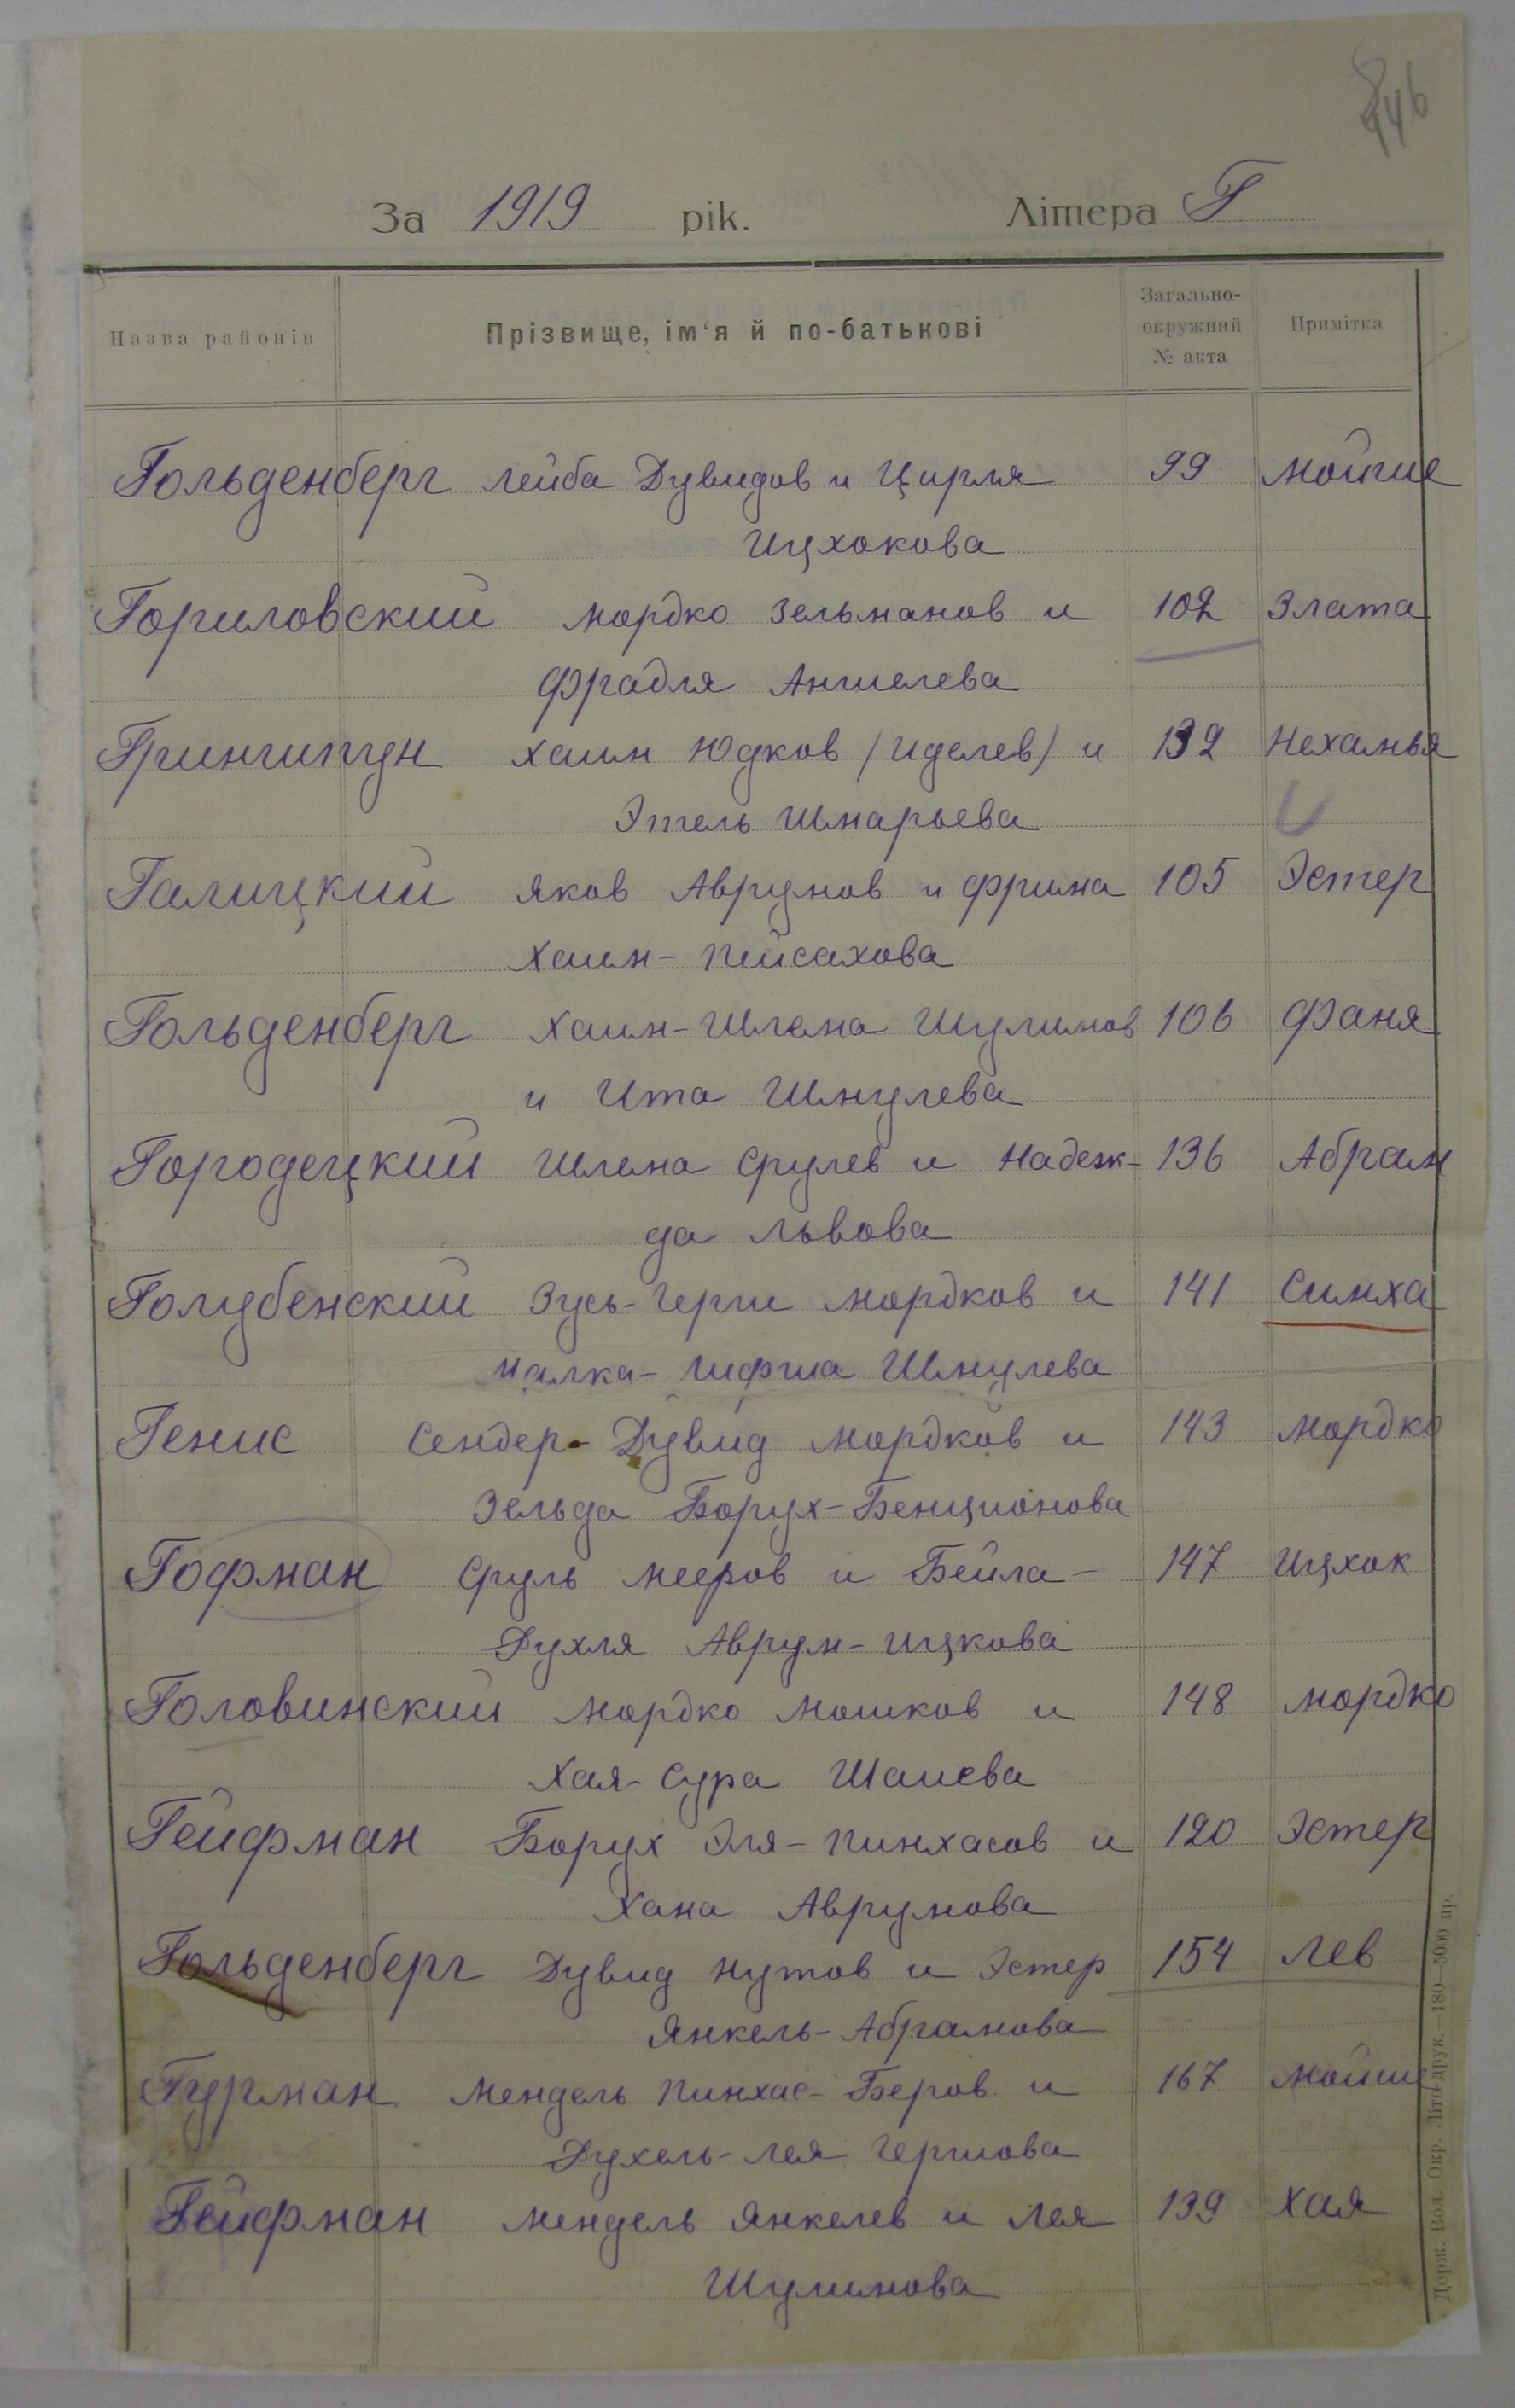 446
За 1919 рік. Літера Г
Назва районів Прізвище, ім‘я й по-батькові Загально-окружний № акта Примітка
Гольденберг Лейба Дувидов и Цирля 99 Мойше
Ицхокова
Гориловский Мордко Зельманов и 102 Злата
Фрадля Аншелева
Гринштун Хаим Юдков (Иделев) и 132 Нехамья
Этель Шмарьева
Галицкий Яков Аврумов и Фрима 105 Эстер
Хаим-Пейсахова
Гольденберг Хаим-Шлема Шулимов 106 Фаня
и Ита Шмулева
Городецкий Шлема Срулев и Надеж- 136 Абрам
да Львова
Голубенский Зусь-Герш Мордков и 141 Симха
Малка-Шифша Шмулева
Генис Сендер-Дувид Мордков и 143 Мордко
Зельда Борух-Бенционова
Гофман Сруль Мееров и Бейла- 147 Ицхок
Духля Аврум-Ицкова
Головинский Мордко Мошков и 148 Мордко
Хая-Сура Шаиева
Гейфман Борух Эля-Пинхасов и 120 Эстер
Хана Аврумова
Гольденберг Дувид Нутов и Эстер 154 Лев
Янкель-Абрамова
Гурман Мендель Пинхас-Беров и 167 Мойше
Духель-Лея Гершова
Гейфман Мендель Янкелев и Лея 139 Хая
Шулимова
Держ. Вол. Окр. Літо-друк. — 180—5000 пр.